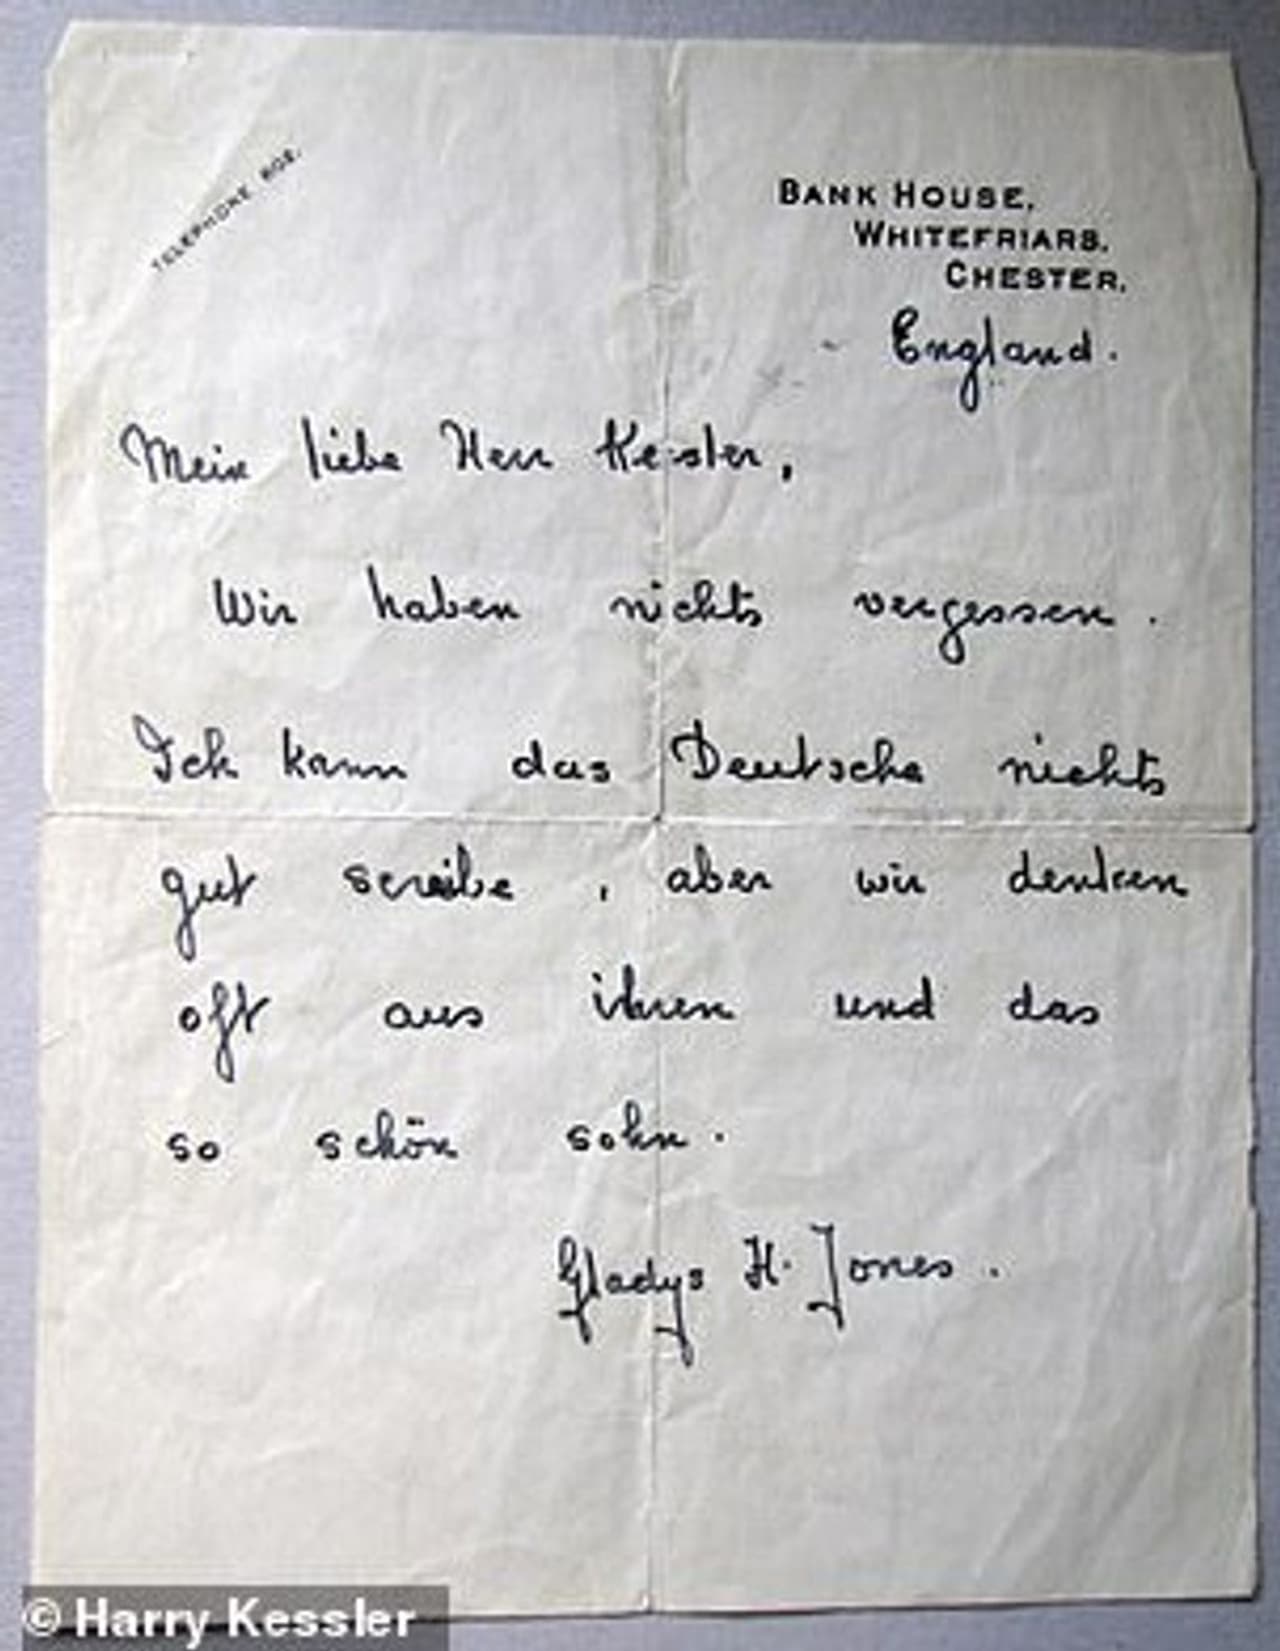 TELEPHONE 802.
BANK HOUSE,
WHITEFRIARS,
CHESTER,
England.
Mein liebe Herr Kessler,
Wir haben nichts vergessen.
Ich kann das Deutsche nichts
gut screibe, aber wir denken
oft aus ihren und das
so schön sohn.
Gladys H. Jones.
© Harry Kessler